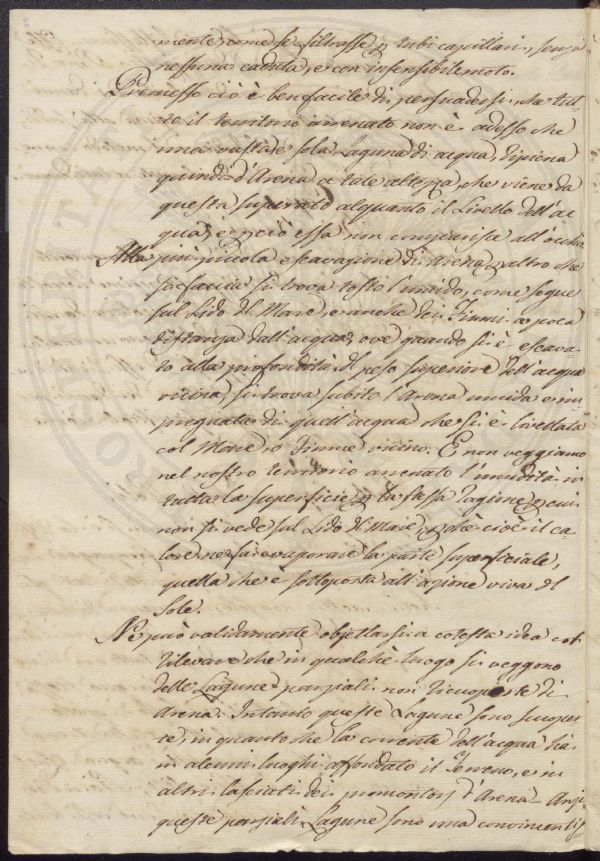 mente, come se filtrasse p tubi capillari, senza
nessuna caduta, e con insensibile moto.
Premesso ciò è ben facile di persuadersi che tut-
to il territorio arrenato non è adesso che
una vasta e sola Laguna di acqua, ripiena
quindi d'Arena a tale altezza, che viene da
questa superato alquanto il Livello dell'ac
qua, e però essa non comparisce all'occhio.
Alla più piccola escavazione di Arena, p altro che
si faccia si trova tosto l'umido, come segue
sul Lido del Mare, e anche dei Fiumi a poca
distanza dall'acqua, ove quando si è escava-
to alla profondità del peso superiore dell'acqua
vicina, si trova subito l'Arena umida e im
pregnata di quell'acqua che si è livellata
col Mare, o Fiume vicino. E non veggiamo
nel nostro territorio arrenato l'umidità in
tutta la superficie p la stessa ragione p cui
non si vede sul Lido del Mare, p chè cioè il ca-
lore ne fà evaporare la parte superficiale,
quella che è sottoposta all'azione viva del
Sole.
Nè può validamente objettarsi a cotesta idea col
rilevare che in qualche luogo si veggono
delle Lagune parziali non ricuoperte di
Arena. Intanto queste Lagune sono scuoper
te, in quanto che la corrente dell'acqua hà
in alcuni luoghi affondato il Terreno, e in
altri lasciati dei promontorj d'Arena. Anzi
queste parziali Lagune sono una convincentis